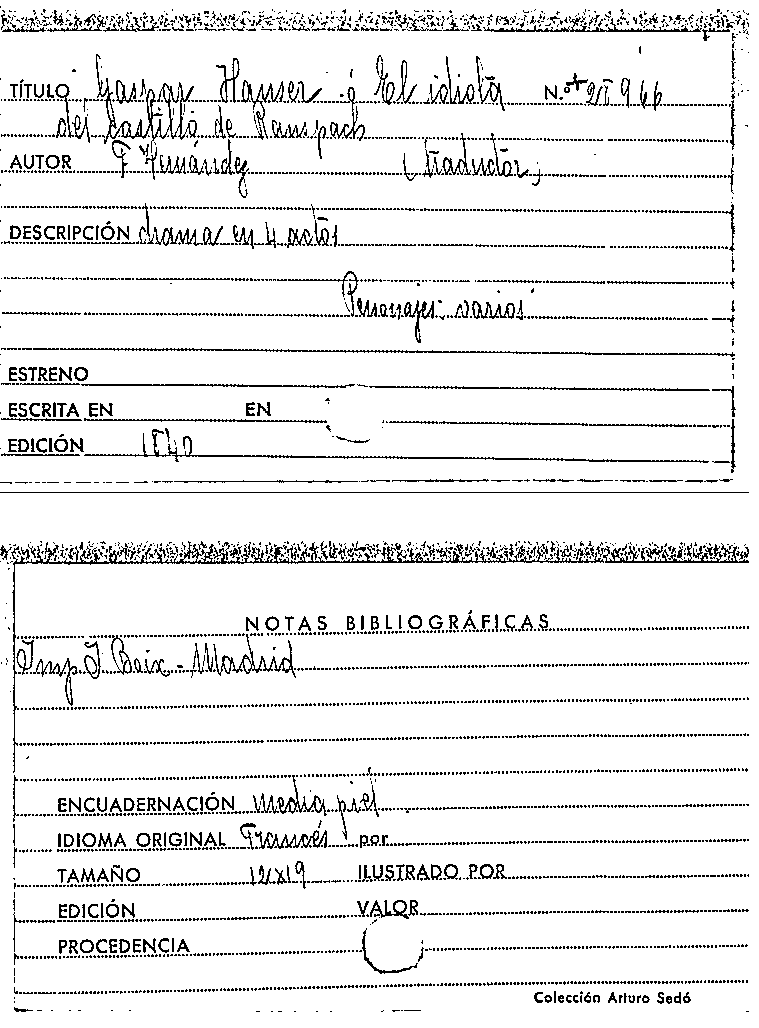 TÍTULO Gaspar Hauser ó El idiota N.º
del Castillo de Ranspach
AUTOR F Hernández (traductor)
DESCRIPCIÓN drama en 4 actos
Personajes: varios
ESTRENO
ESCRITA EN EN
EDICIÓN 1840
NOTAS BIBLIOGRÁFICAS
Imp. I Boix - Madrid
ENCUADERNACIÓN media piel
IDIOMA ORIGINAL Francés por
TAMAÑO 12x19 ILUSTRADO POR
EDICIÓN VALOR
PROCEDENCIA
Colección Arturo Sedó